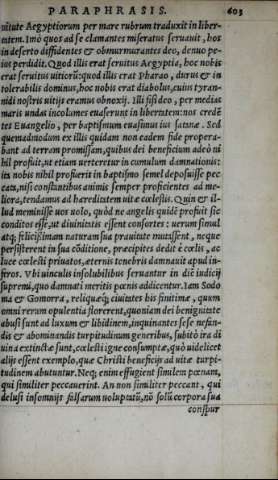 PARAPHRASIS. 603
uitute Aegyptiorum per mare rubrum traduxit in liber-
tatem. Imò quos ad se clamantes miseratus seruauit, hos
in deserto diffidentes & obmurmurantes deo, denuo pe-
ius perdidit. Quod illis erat seruitus Aegyptia, hoc nobis
erat seruitus uitiorũ: quod illis erat Pharao, durus & in
tolerabilis dominus, hoc nobis erat diabolus, cuius tyran-
nidi nostris uitijs eramus obnoxij. Illi fisi deo, per medias
maris undas incolumes euaserunt in libertatem: nos credẽ
tes Euangelio, per baptismum euasimus ius satanæ. Sed
quemadmodum ex illis quidam non eadem fide propera-
bant ad terram promissam, quibus dei beneficium adeò ni
hil profuit, ut etiam uerteretur in cumulum damnationis:
ita nobis nihil profuerit in baptismo semel deposuisse pec
cata, nisi constantibus animis semper proficientes ad me-
liora, tendamus ad hæreditatem uitæ cœlestis. Quin & il-
lud meminisse uos uolo, quòd ne angelis quidẽ profuit sic
conditos esse, ut diuinitatis essent consortes: uerum simul
atq; felicissimam naturam sua prauitate mutassent, neque
perstiterent in sua cõditione, præcipites dedit è cœlis, ac
luce cœlesti priuatos, æternis tenebris damnauit apud in-
feros. Vbi uinculis insolubilibus seruantur in diẽ iudicij
supremi, quo damnati meritis pœnis addicentur. Iam Sodo
ma & Gomorra, reliquæq; ciuitates his finitimæ, quum
omni rerum opulentia florerent, quoniam dei benignitate
abusi sunt ad luxum & libidinem, inquinantes sese nefan-
dis & abominandis turpitudinum generibus, subitò ira di
uina extinctæ sunt, cœlesti igne consumptæ, quò uidelicet
alijs essent exemplo, quæ Christi beneficijs ad uitæ turpi-
tudinem abutuntur. Neq; enim effugient similem pœnam,
qui similiter peccauerint. An non similiter peccant, qui
delusi insomnijs falsarum uoluptatũ, nõ solũ corpora sua
conspur